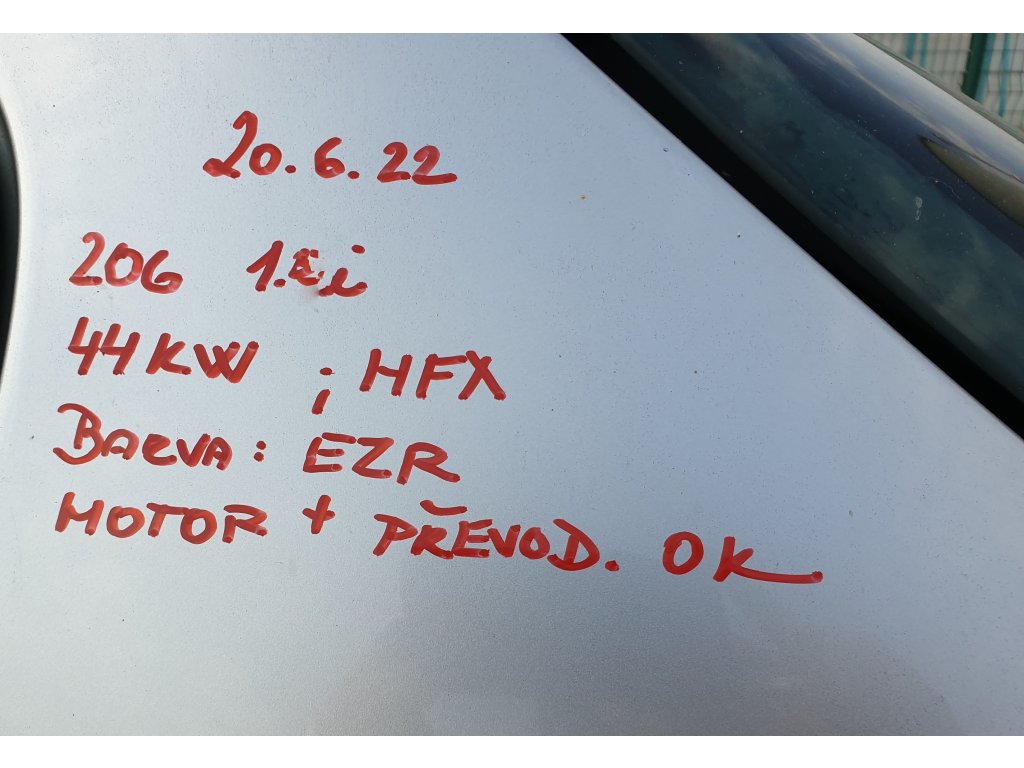 20.6.22
206 i
44KW ; HFX
BARVA: EZR
MOTOR + PŘEVOD. OK